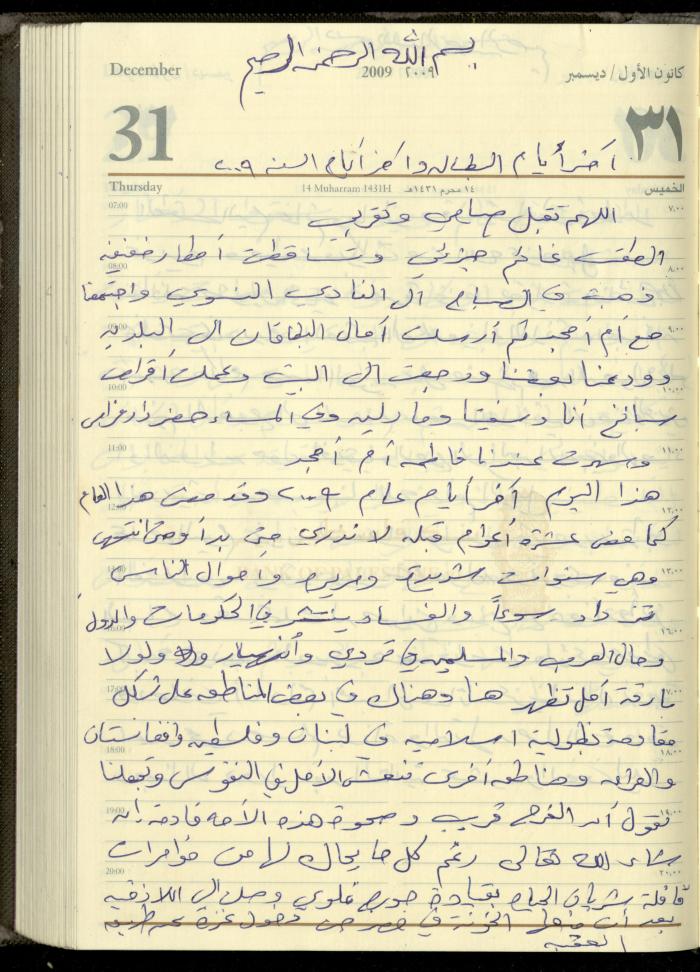 بسم الله الرحمن الرحيم
December 2009 ٢٠٠٩ كانون الأول / ديسمبر
31 ٣١
آخر أيام البطاله وآخر أيام السنه ٢٠٠٩
Thursday 14 Muharram 1431H ١٤ محرم ١٤٣١هـ الخميس
07:00 ٧:٠٠
اللهم تقبل صيامي وتقربي
الطقس غائم جزئي وتتساقط أمطار خفيفه
08:00 ٨:٠٠
ذهبت في الصباح الى النادي النسوي واجتمعنا
09:00 ٩:٠٠
مع أم أمجد ثم أرسلت آمال البطاقات الى البلديه
وودعنا بعضنا ورجعت الى البيت وعملت أقراص
10:00 ١٠:٠٠
سبانخ أنا وسفيتا ومارلين وفي المساء حضر
11:00 ١١:٠٠
وسهرت عندنا فاطمه أم أمجد
هذا اليوم آخر أيام عام ٢٠٠٩ وقد مضى هذا العام
12:00 ١٢:٠٠
كما مضى عشرة أعوام قبله لا ندري متى بدأ ومتى انتهى
١٣:٠٠
وهي سنوات شديدة ومريره واحوال الناس
تزداد سوءاً والفساد ينتشر في الحكومات والدول
١٦:٠٠
وحال العرب والمسلمين في تردي وأنهيار ولولا
17:00
بارقة أمل تظهر هنا وهناك في بعض المناطق على شكل
مقاومة بطولية اسلاميه في لبنان وفلسطين وافغانستان
18:00 ١٨:٠٠
والعراق ومناطق أخرى تنعش الأمل في النفوس وتجعلنا
19:00 ١٩:٠٠
نقول أن الفرج قريب وصحوة هذه الأمه قادمة إن
شاء الله تعالى رغم كل ما يحاك لها من مؤامرات
20:00 ٢٠:٠٠
قافلة شريان الحياه بقيادة جورج غلوي وصلت الى اللاذقيه
بعد أن منعها في دخول غزة عن طريق
العقبه